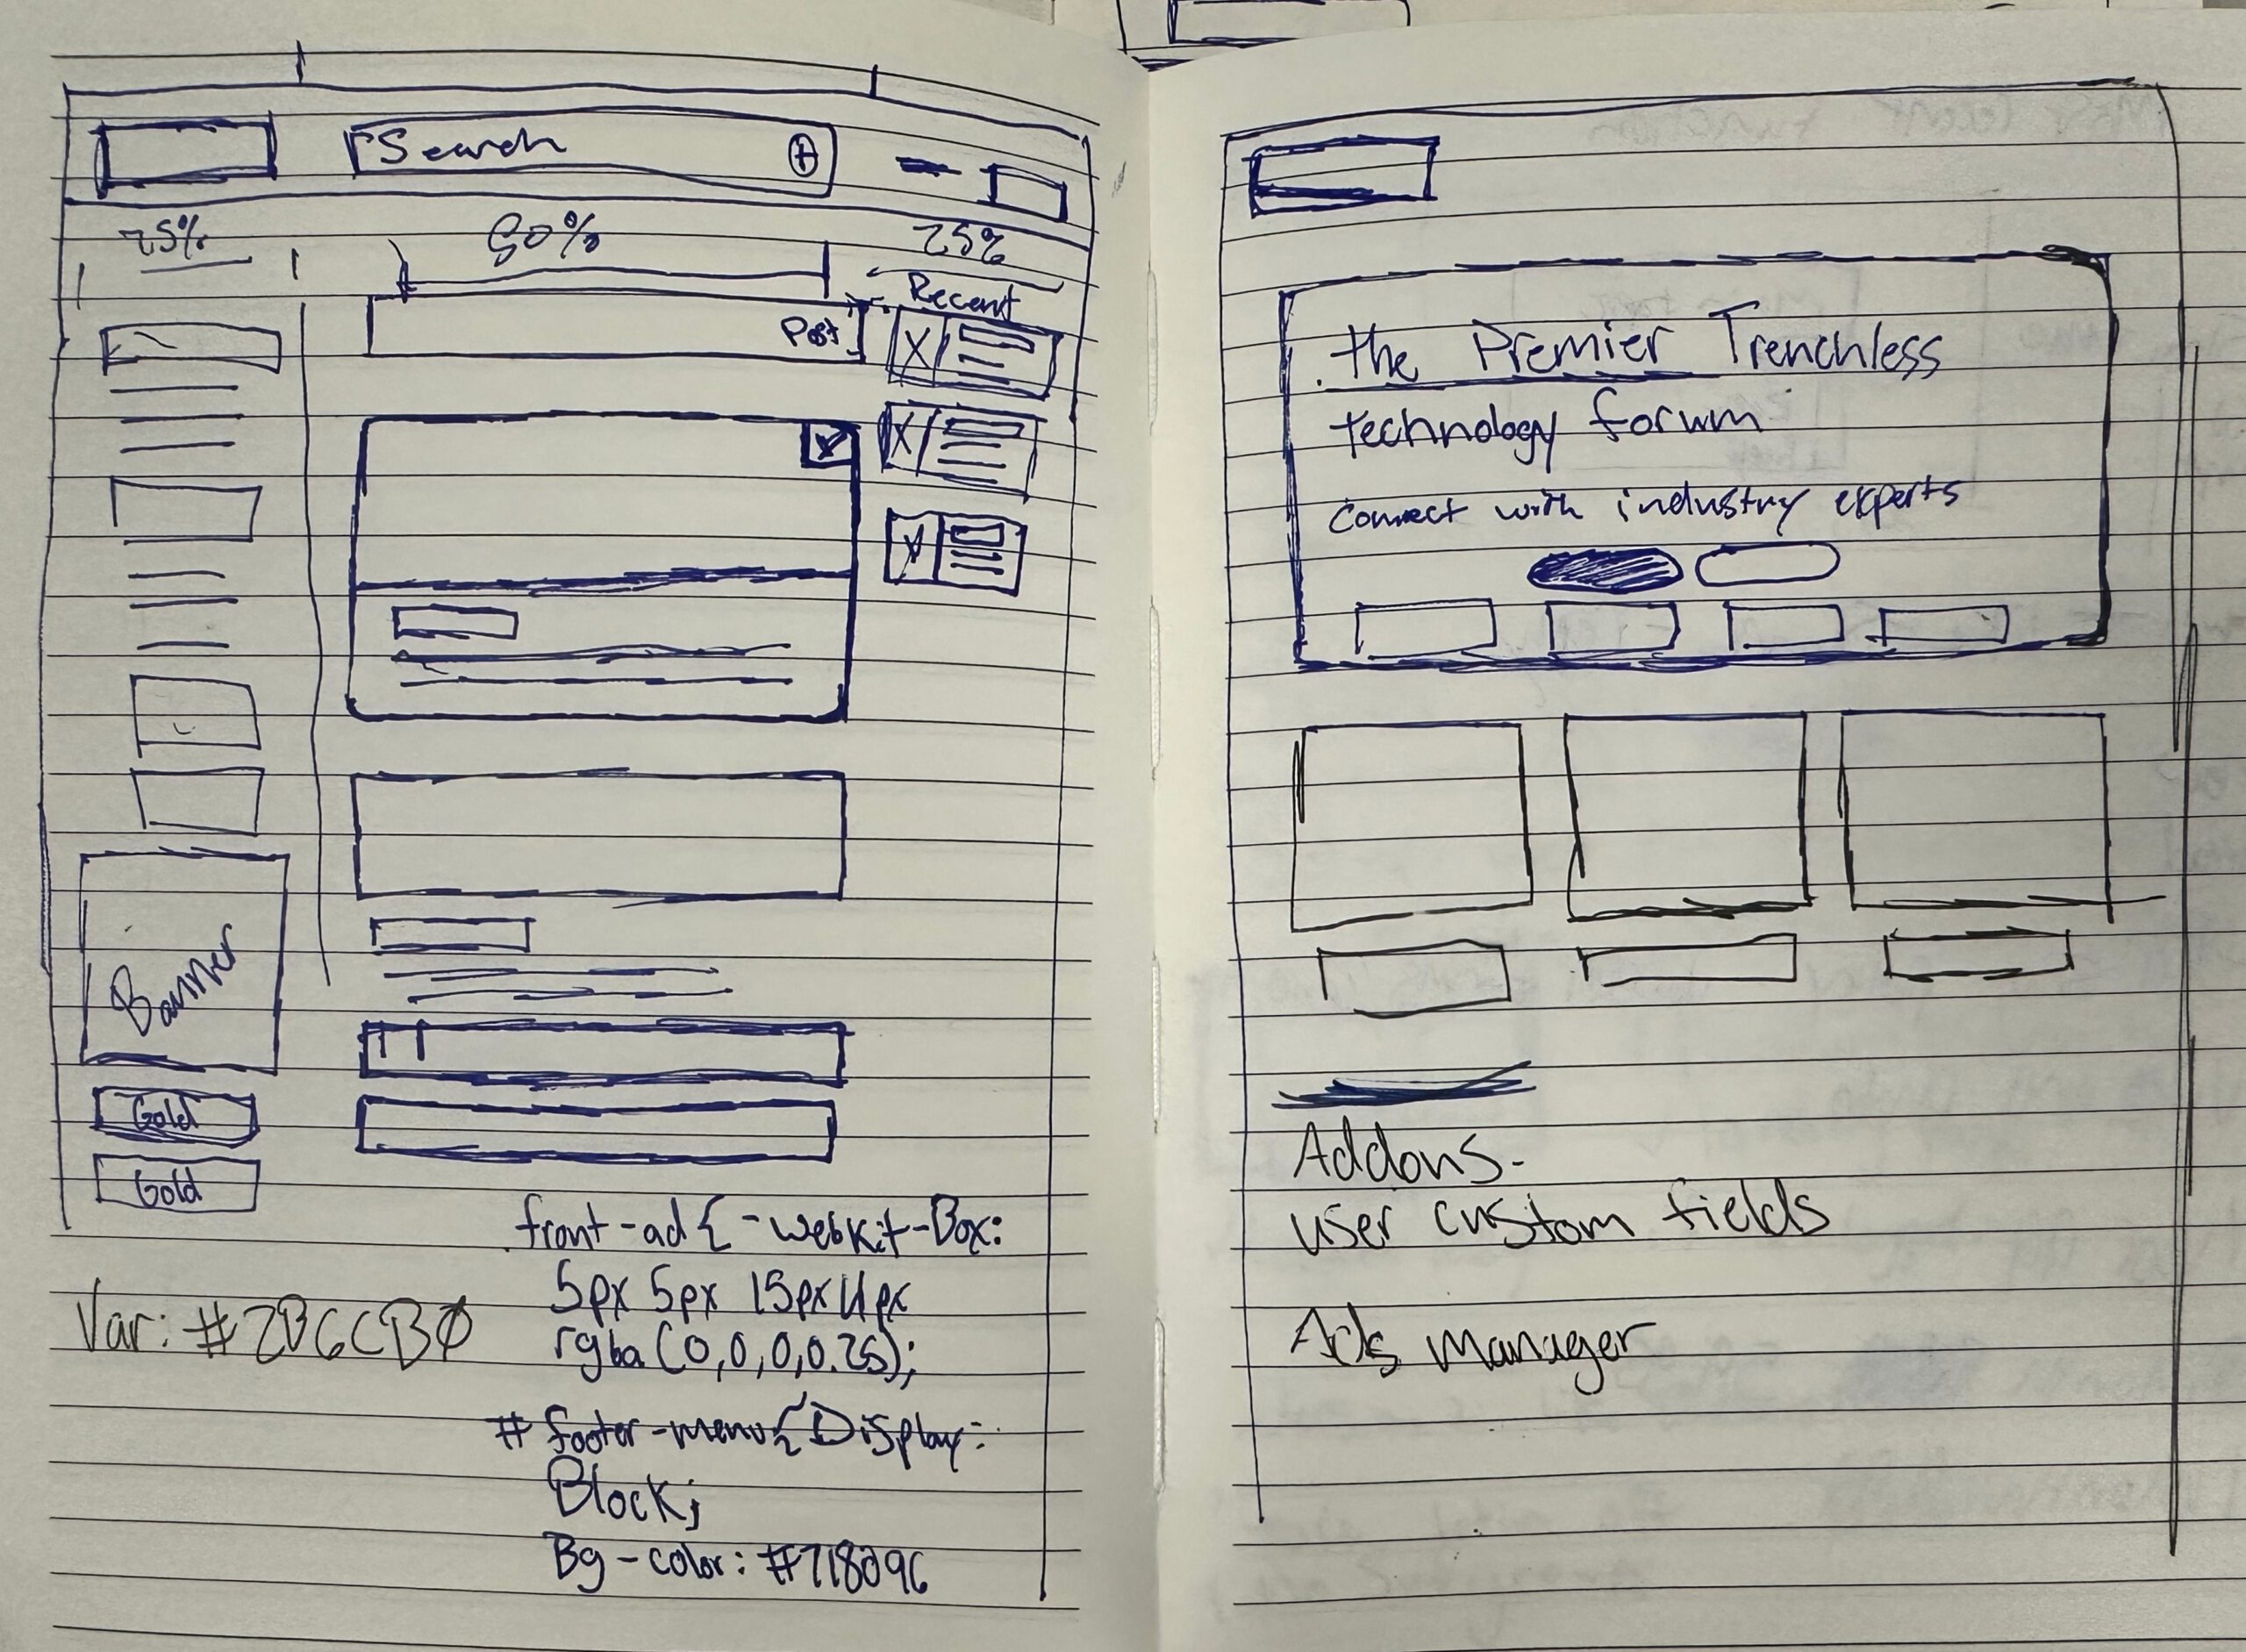 Search
25% 50% 25%
Recent
Post
Banner
Gold
Gold
.front-ad{-webkit-Box:
5px 5px 15px 4px
rgba(0,0,0,0.25);
Var: #2B6CB0
#footer-menu{Display:
Block;
Bg-color: #718096
the Premier Trenchless
technology forum
connect with industry experts
Addons-
user custom fields
Ads manager